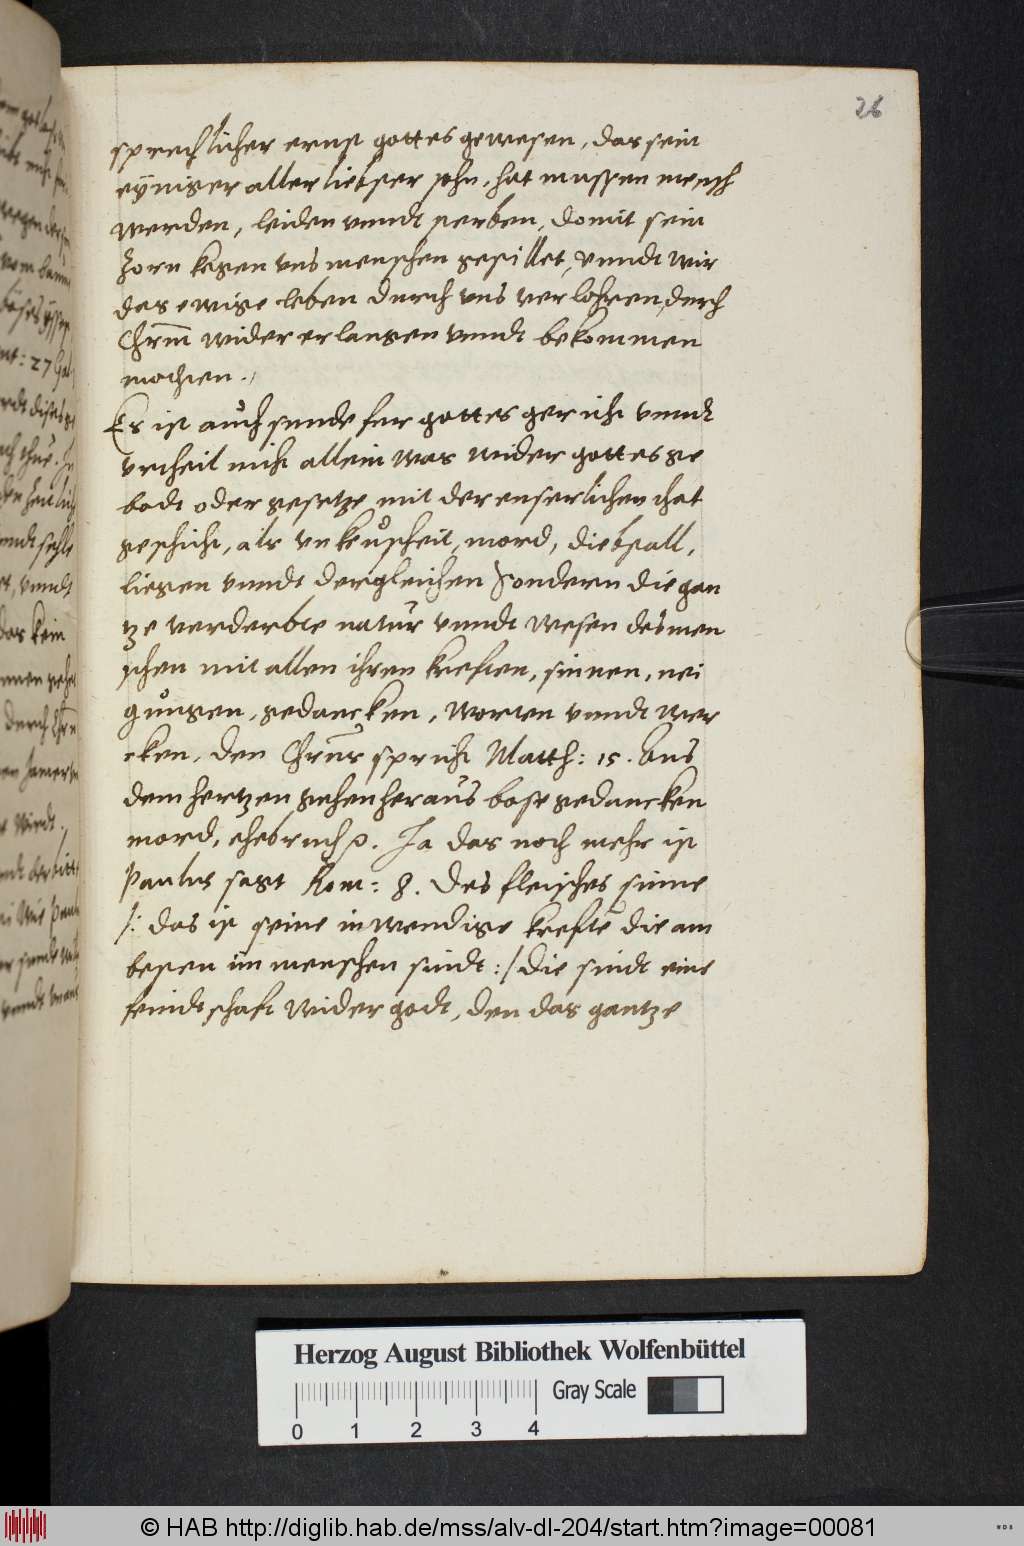 26
sprechlicher ernst gottes gewesen, das sein
eyniger allerliebster sohn, hat mussen mensch
werden, leiden vnndt sterben, domit sein
zorn kegen vns menschen gestillet, vnndt wir
das ewige leben durch vns verlohren, durch
Chrm wider erlangen vnndt bekommen
mochten.
Es ist auch sunde fur gottes gericht vnndt
vrtheil nicht allein was wider gottes ge
bodt oder gesetze mit der euserlichen that
geschicht, als vnkeuscheit, mord, diebstall,
liegen vnndt dergleichen Sondern die gan
tze verderbte natur vnndt wesen des men
schen mit allen ihren kreften, sinnen, nei
gungen, gedancken, worten vnndt wer
cken, den Chrus spricht Matth: 15. Aus
dem hertzen gehen heraus böse gedancken
mord, ehebruch. Ja das noch mehr ist
Paulus sagt Rom: 8. Des fleisches sinne
/: das ist seine inwendige krefte die am
besten im menschen sindt :/ die sindt eine
feindtschaft wider godt, den das gantze
Herzog August Bibliothek Wolfenbüttel
Gray Scale
0 1 2 3 4
© HAB http://diglib.hab.de/mss/alv-dl-204/start.htm?image=00081